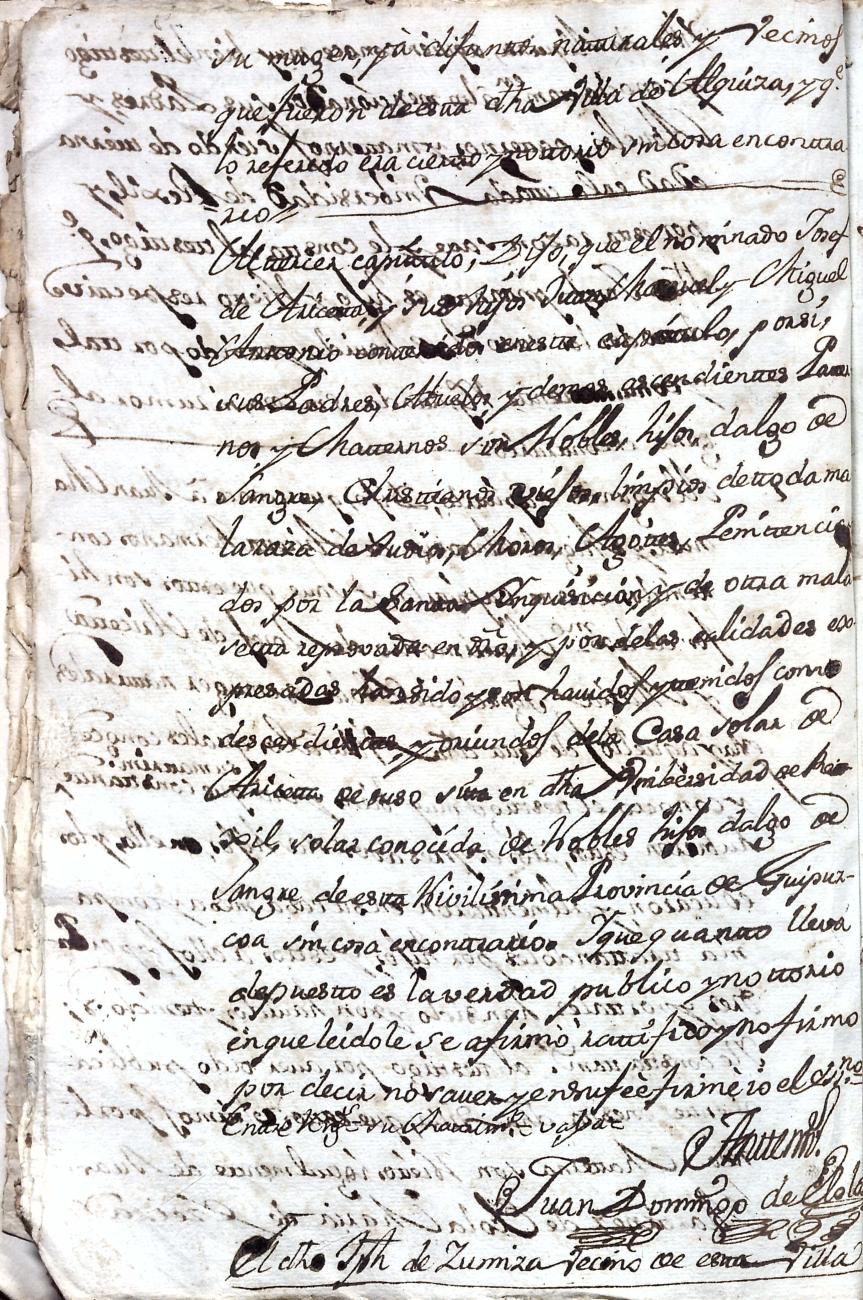 su muger, ya difuntos naturales y Vecinos
que fueron de esta dha Villa de Alquiza, y q.e
lo referido era cierto y nottorio sin cosa en conttra
rio
Al tercer capitulo, Dijo, que el nominado Josef
de Aricetta, y sus hijos Juan Manuel y Miguel
Antonio conttenidos en este capittulo, por si,
sus Padres, Abuelos, y demas ascendientes Pater
nos y Matternos son Nobles, hijos dalgo de
Sangre, Christianos viejos, limpios de ttoda ma
la raza de Judios, Moros, Agotes, Penittencia
dos por la Santa Inquisicion, y de otra mala
secta reprovada en dro, y por de las calidades es
presadas han sido y son havidos y ttenidos como
descendientes, y oriundos de la Casa solar de
Aricetta de suso sitta en dha Vnibersidad de Re
xil, solar conocida de Nobles hijos dalgo de
Sangre de esta Nvilissima Provincia de Guipuz-
coa sin cosa en conttrario. Y que quantto lleva
depuestto es la verdad publico y nottorio
en que leidole se afirmó, rattificó y no firmó
por decir no saver, y en su fee firmé io el Ess.no
Entre Reng.s
Antemi.
Juan Domingo de Elola
El dho Jph de Zumiza Vecino de esta Villa